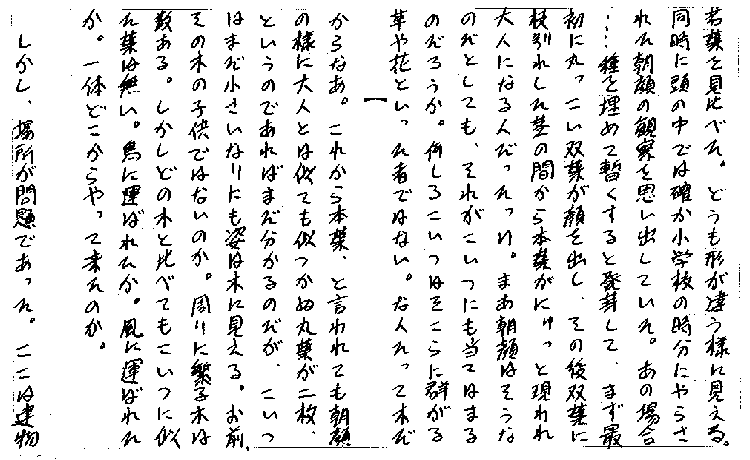 若葉を見比べた。どうも形が違う様に見える。
同時に頭の中では確か小学校の時分にやらさ
れた朝顔の観察を思い出していた。あの場合
…種を埋めて暫くすると発芽して、まず最
初に丸っこい双葉が顔を出し、その後双葉に
枝別れした茎の間から本葉がにゅっと現われ
大人になる人だったっけ。まあ朝顔はそうな
のだとしても、それがこいつにも当てはまる
のだろうか。何しろこいつはそこらに群がる
草や花といった者ではない。なんたって木だ
からなあ。これから本葉、と言われても朝顔
の様に大人とは似ても似つかぬ丸葉が二枚、
というのであればまだ分かるのだが、こいつ
はまだ小さいなりにも姿は木に見える。お前、
その木の子供ではないのか。周りに繁る木は
数ある。しかしどの木と比べてもこいつに似
た葉は無い。鳥に運ばれたか。風に運ばれた
か。一体どこからやって来たのか。
しかし、場所が問題であった。ここは建物